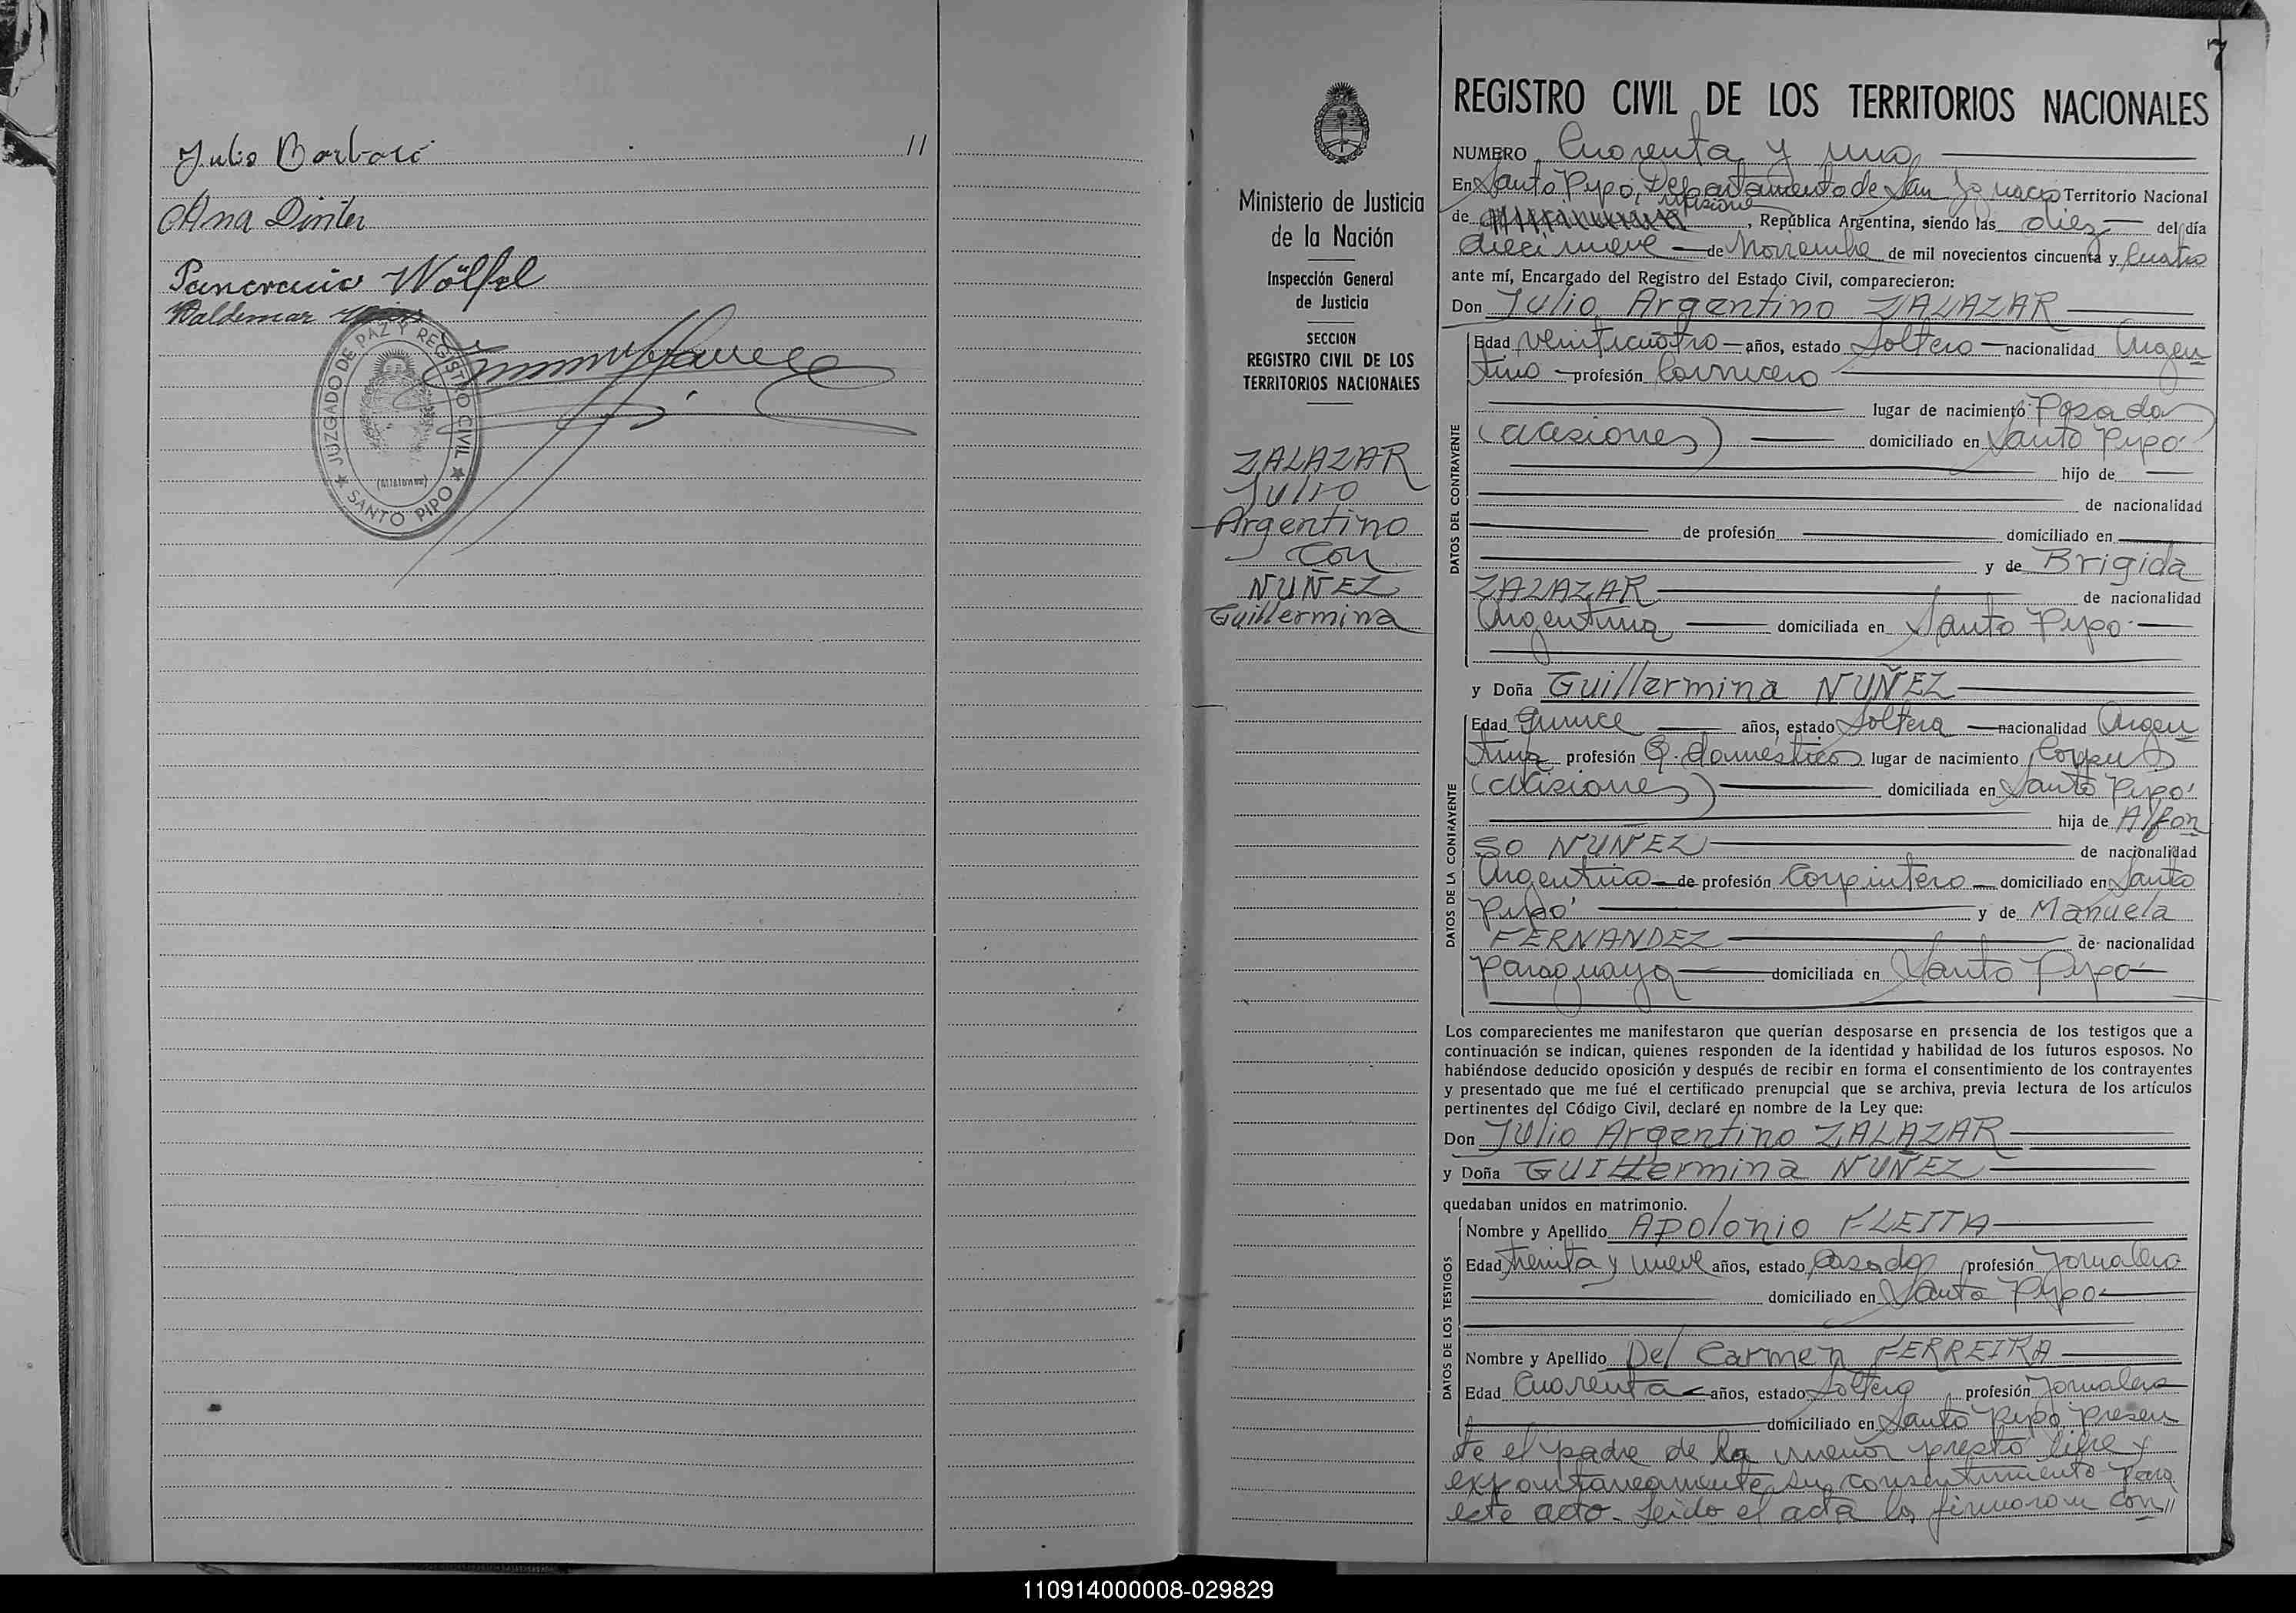 Julio Barbaró //
Ana Dinter
Pancracio Wölfel
Waldemar
JUZGADO DE PAZ Y REGISTRO CIVIL
(MISIONES)
★ SANTO PIPO ★
7
Ministerio de Justicia
de la Nación
Inspección General
de Justicia
SECCION
REGISTRO CIVIL DE LOS
TERRITORIOS NACIONALES
ZALAZAR
Julio
Argentino
con
NUÑEZ
Guillermina
REGISTRO CIVIL DE LOS TERRITORIOS NACIONALES
NUMERO Cuarenta y uno
En Santo Pipó, Departamento de San Ignacio Territorio Nacional
de Misiones, República Argentina, siendo las diez del día
diecinueve de Noviembre de mil novecientos cincuenta y cuatro
ante mí, Encargado del Registro del Estado Civil, comparecieron:
Don Julio Argentino ZALAZAR
DATOS DEL CONTRAYENTE
Edad veinticuatro años, estado Soltero nacionalidad Argen
tino profesión Carnicero
lugar de nacimiento Posadas
(Misiones) domiciliado en Santo Pipó
hijo de
de nacionalidad
de profesión domiciliado en
y de Brigida
ZALAZAR de nacionalidad
Argentina domiciliada en Santo Pipo
y Doña Guillermina NUÑEZ
DATOS DE LA CONTRAYENTE
Edad Quince años, estado Soltera nacionalidad Argen
tina profesión Q. domésticos lugar de nacimiento Corpus
(Misiones) domiciliada en Santo Pipó
hija de Alfon
so NUÑEZ de nacionalidad
Argentina de profesión Carpintero domiciliado en Santo
Pipó y de Manuela
FERNANDEZ de nacionalidad
Paraguaya domiciliada en Santo Pipó
Los comparecientes me manifestaron que querían desposarse en presencia de los testigos que a
continuación se indican, quienes responden de la identidad y habilidad de los futuros esposos. No
habiéndose deducido oposición y después de recibir en forma el consentimiento de los contrayentes
y presentado que me fué el certificado prenupcial que se archiva, previa lectura de los artículos
pertinentes del Código Civil, declaré en nombre de la Ley que:
Don Julio Argentino ZALAZAR
y Doña GUILLermina NUÑEZ
quedaban unidos en matrimonio.
DATOS DE LOS TESTIGOS
Nombre y Apellido Apolonio FLEITA
Edad treinta y nueve años, estado Casado, profesión Jornalero
domiciliado en Santo Pipo
Nombre y Apellido Del Carmen FERREIRA
Edad Cuarenta años, estado Soltero, profesión Jornalero
domiciliado en Santo Pipó Presen
te el padre de la menor prestó libre y
expontaneamente su consentimiento para
este acto. Leido el acta la firmaron con //
110914000008-029829